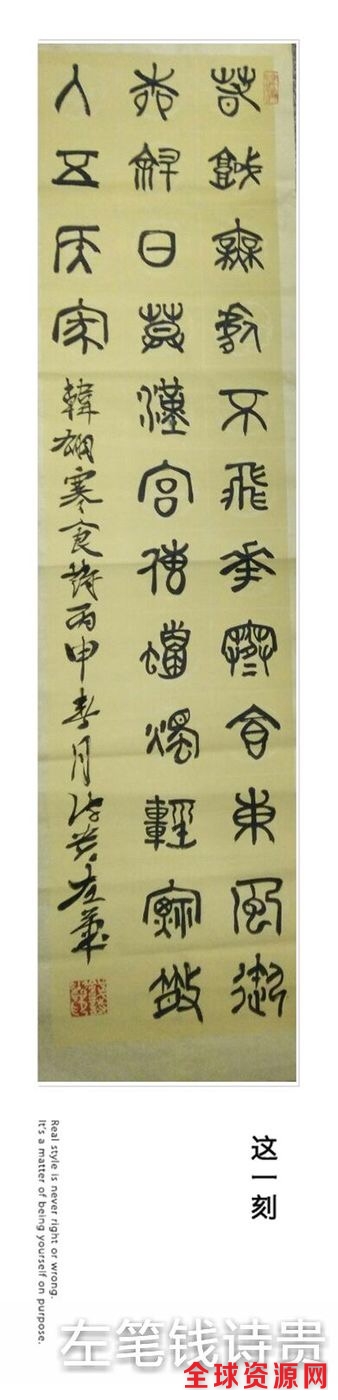 春城無處不飛花寒食東風御
柳斜日暮漢宮傳蠟燭輕煙散
入五侯家
韓翃寒食詩丙申春月詩貴左筆
这一刻
Real style is never right or wrong.
It's a matter of being yourself on purpose.
左笔钱诗贵
全球资源网